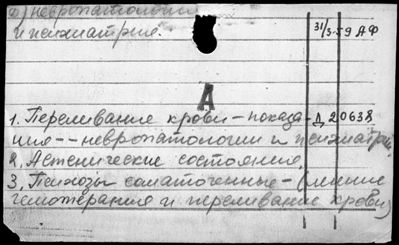 2) невропатологии
и психиатрия.
31/3-59 АФ
А
1. Переливание крови – показа- Д 20638
ния -- невропатологии и психиатрии
2. Астенические состояния,
3. Психозы соматогенные – (лечение
гемотерапия и переливание крови)